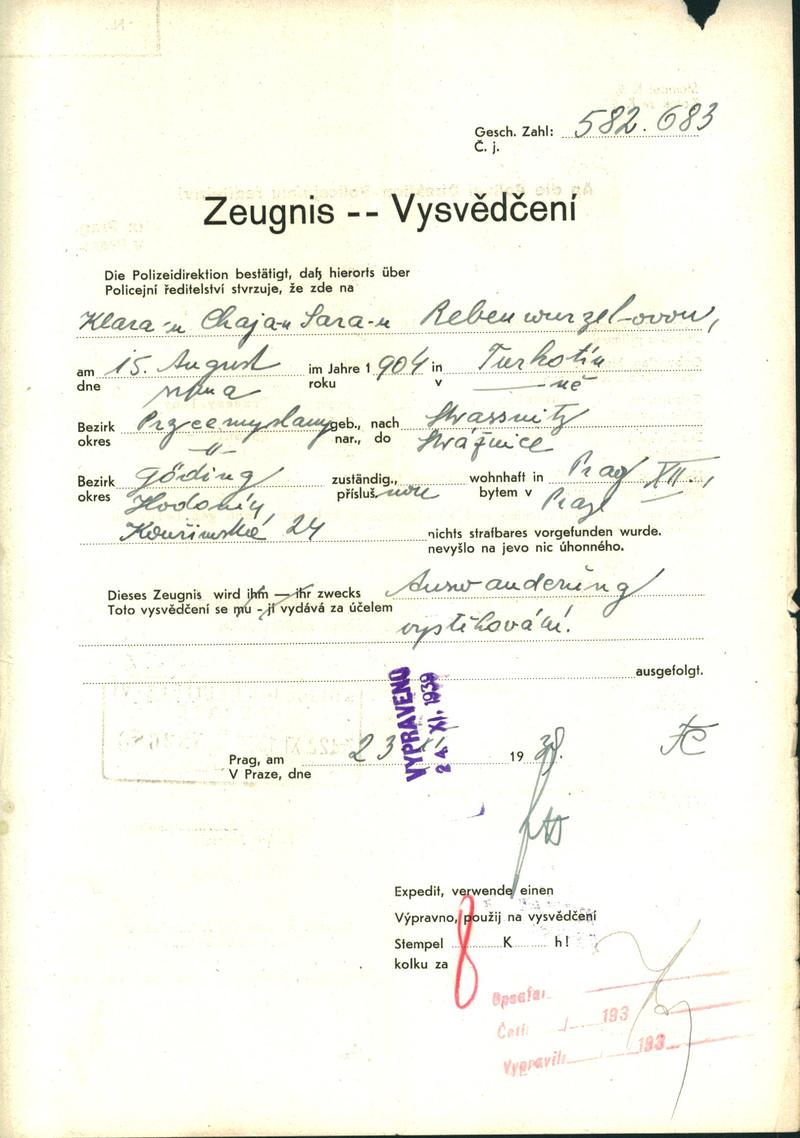 Gesch. Zahl: 582.683
Č. j.
Zeugnis -- Vysvědčení
Die Polizeidirektion bestätigt, daß hierorts über
Policejní ředitelství stvrzuje, že zde na
Klara-u Chaja-u Sara-u Rebenwurzel-ovou,
am 15. August im Jahre 1904 in Turkotin
dne srpna roku v -ně
Bezirk Przcemyslany geb., nach Strassnitz
okres -"- nar., do Strážnice
Bezirk Göding zuständig., wohnhaft in Prag XII.,
okres Hodonín, přísluš.nou bytem v Praze
Kouřimská 24 nichts strafbares vorgefunden wurde.
nevyšlo na jevo nic úhonného.
Dieses Zeugnis wird ihm — ihr zwecks Auswanderung
Toto vysvědčení se mu - jí vydává za účelem
vystěhování.
ausgefolgt.
VYPRAVENO
24. XI. 1939
Prag, am 23 XI 1939.
V Praze, dne
Expedit, verwende einen
Výpravno, použij na vysvědčení
Stempel 8 K h!
kolku za
Opsal:
Četl: 193
Vypravil: 193